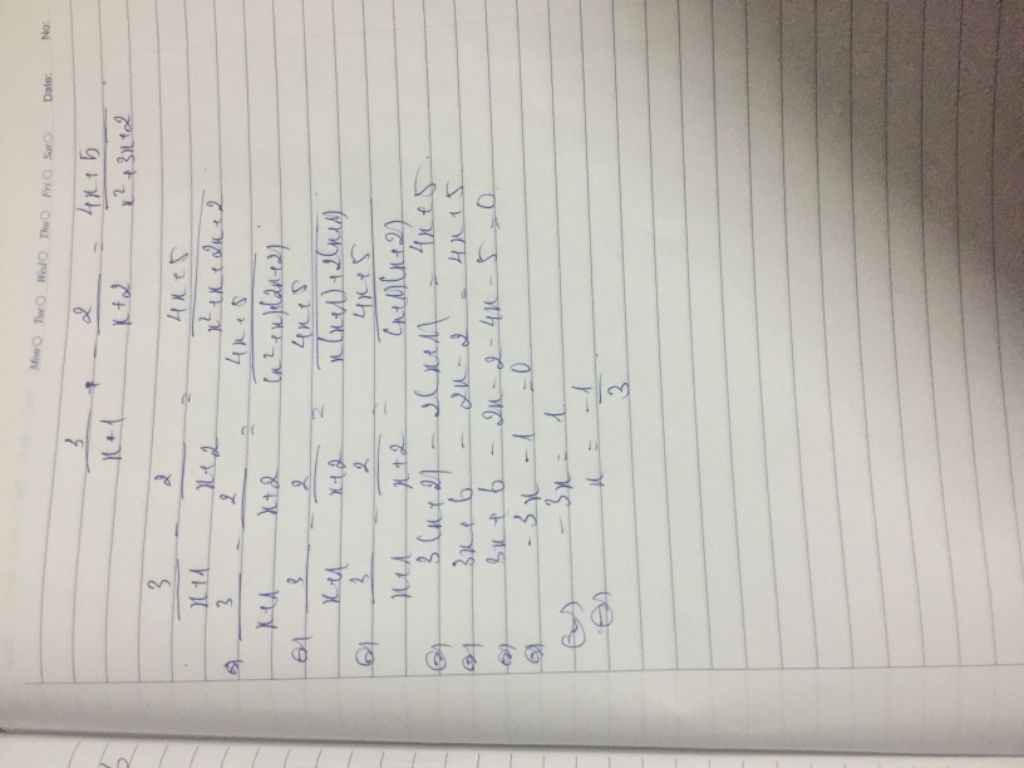 Mon Tue Wed Thu Fri Sat Date: No:
3/(x+1) - 2/(x+2) = (4x+5)/(x²+3x+2)
3/(x+1) - 2/(x+2) = (4x+5)/(x²+x+2x+2)
⇔ 3/(x+1) - 2/(x+2) = (4x+5)/((x²+x)(2x+2))
⇔ 3/(x+1) - 2/(x+2) = (4x+5)/(x(x+1)+2(x+1))
⇔ 3/(x+1) - 2/(x+2) = (4x+5)/((x+1)(x+2))
⇔ 3(x+2) - 2(x+1) = 4x+5
⇔ 3x+6 - 2x-2 = 4x+5
⇔ 3x+6 - 2x-2-4x-5=0
⇔ -3x-1=0
⇔ -3x=1
⇔ x = -1/3